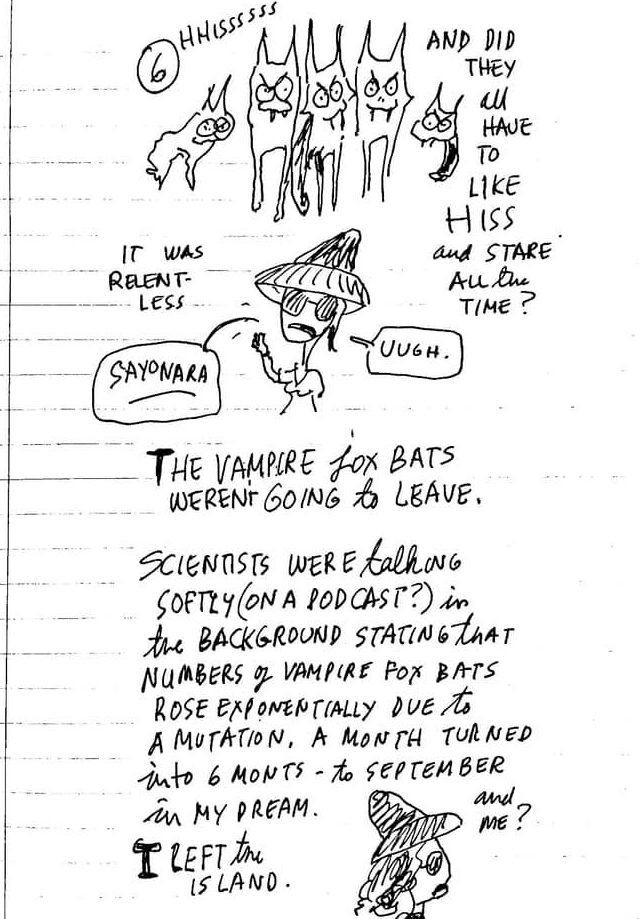 6
HHISSSSSS
AND DID
THEY
all
HAVE
TO
LIKE
HISS
and STARE
ALL the
TIME?
IT WAS
RELENT-
LESS
SAYONARA
UUGH.
THE VAMPIRE fox BATS
WEREN'T GOING to LEAVE.
SCIENTISTS WERE talking
SOFTLY (ON A PODCAST?) in
the BACKGROUND STATING that
NUMBERS of VAMPIRE FOX BATS
ROSE EXPONENTIALLY DUE to
A MUTATION. A MONTH TURNED
into 6 MONTS - to SEPTEMBER
in MY DREAM.
and
ME?
I LEFT the
ISLAND.